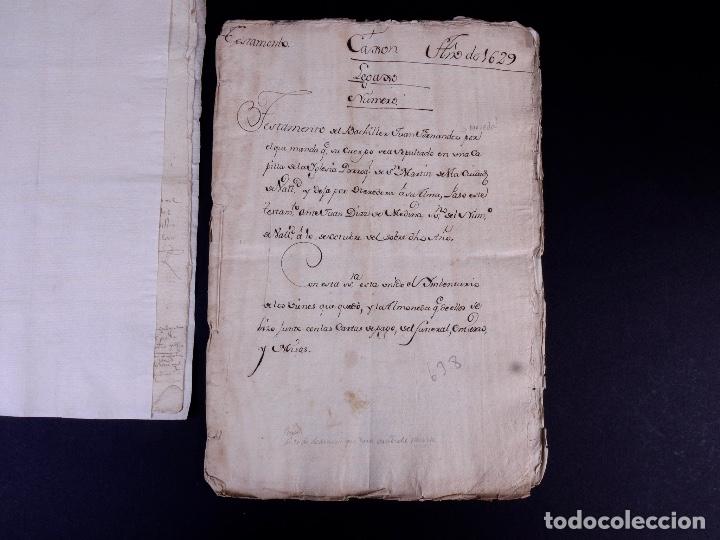 Testamento.
Caxon
Año de 1629
Legaxo
Numero
Testamento del Bachiller Juan Fernandez por
el que manda q̃ su Cuerpo sea sepultado en una Ca-
pilla de la Yglesia Parroq.l de S.n Martin de esta Ciudad
de Vall.d y deja por Heredera á su Alma, Paso este
testam.to ante Juan Diaz de Medina ss.no del Num.o
de Vall.d á 10 de Octubre del sobre dho Año.
Con esta ss.ra esta unido el Ymbentario
de los vienes que quedó, y la Almoneda q̃ de ellos se
hizo junto con las Cartas de pago, del funeral, Entierro,
y Misas.
698
todocoleccion
todocoleccion.net